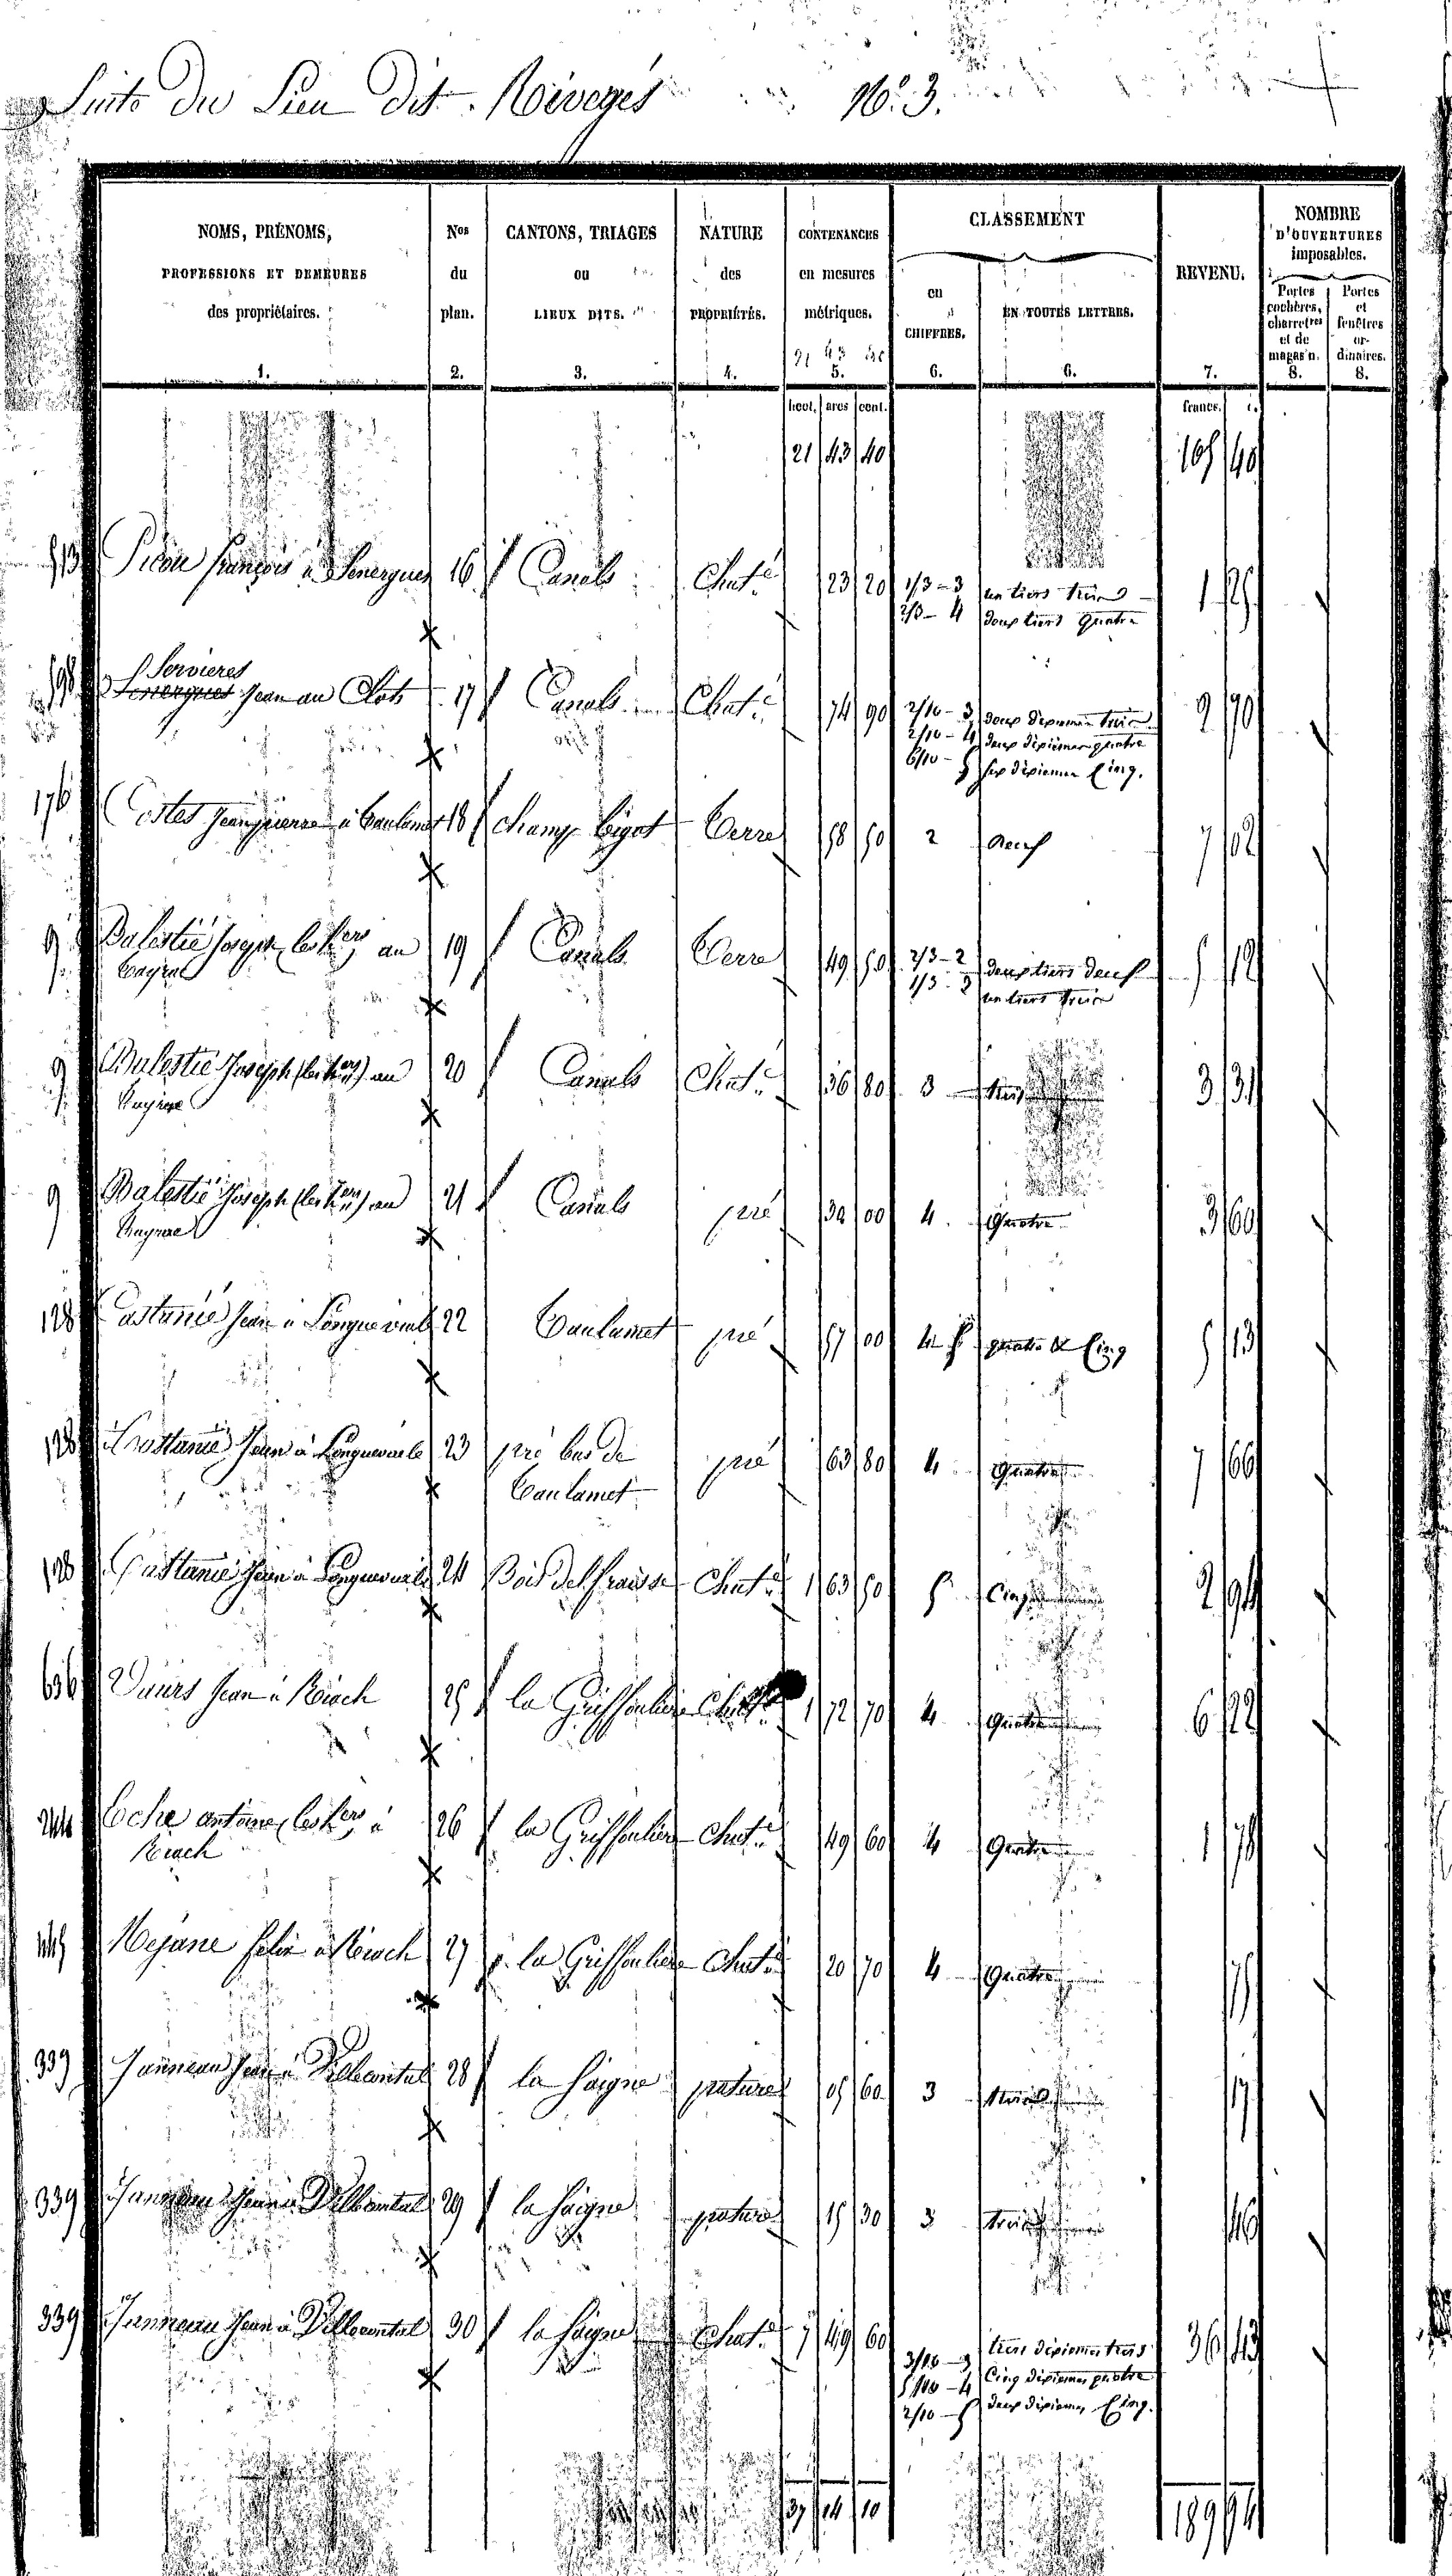 Suite du Lieu dit N° 3.
NOMS, PRÉNOMS, PROFESSIONS ET DEMEURES des propriétaires. 1.
Nos du plan. 2.
CANTONS, TRIAGES ou LIEUX DITS. 3.
NATURE des PROPRIÉTÉS. 4.
CONTENANCES en mesures métriques. 5.
CLASSEMENT
en CHIFFRES. 6.
EN TOUTES LETTRES. 6.
REVENU. 7.
NOMBRE D'OUVERTURES imposables.
Portes cochères, charretres et de magas'n. 8.
Portes et fenêtres or-dinaires. 8.
hect. ares cent. francs. c.
21 43 40 105 40
François à Senergues 16 Canals Chatie 23 20 1/3 - 3 un tiers trois 1 25
2/3 - 4 deux tiers quatre
598 Servieres
Senergues Jean au Clots 17 Canals Chatie 74 90 2/10 - 3 deux dixiemes trois 2 70
2/10 - 4 deux dixiemes quatre
6/10 - 5 six dixiemes Cinq.
176 Costes Jean pierre à Caulamet 18 champ bigot Terre 58 50 2 deux 7 02
9 Balestié Joseph (les hers) au 19 Canals Terre 49 50 2/3 - 2 deux tiers deux 5 12
1/3 - 3 un tiers trois
9 Balestié Joseph (les hers) au 20 Canals Chatie 36 80 3 trois 3 31
9 Balestié Joseph (les hers) au 21 Canals pré 30 00 4 Quatre 3 60
128 Castanié Jean à Longueviale 22 Caulamet pré 57 00 4 5 quatre & Cinq 5 13
128 Castanié Jean à Longueviale 23 pré bas de pré 63 80 4 Quatre 7 66
Caulamet
128 Castanié Jean à Longueviale 24 Bois del fraisse Chatie 1 63 50 5 Cinq 2 94
636 Jean à 25 la Griffouliere 1 72 70 4 Quatre 6 22
244 antoine (les hers) à 26 la Griffouliere Chatie 49 60 4 Quatre 1 78
445 Mejane felix à 27 la Griffouliere Chatie 20 70 4 Quatre 75
339 Janneau Jean à Villecontal 28 la Saigne pature 05 60 3 trois 17
339 Janneau Jean à Villecontal 29 la Saigne pature 15 30 3 trois 46
339 Janneau Jean à Villecontal 30 la Saigne Chatie 7 49 60 3/10 - 3 trois dixiemes trois 36 43
5/10 - 4 Cinq dixiemes quatre
2/10 - 5 deux dixiemes Cinq.
37 14 10 189 94